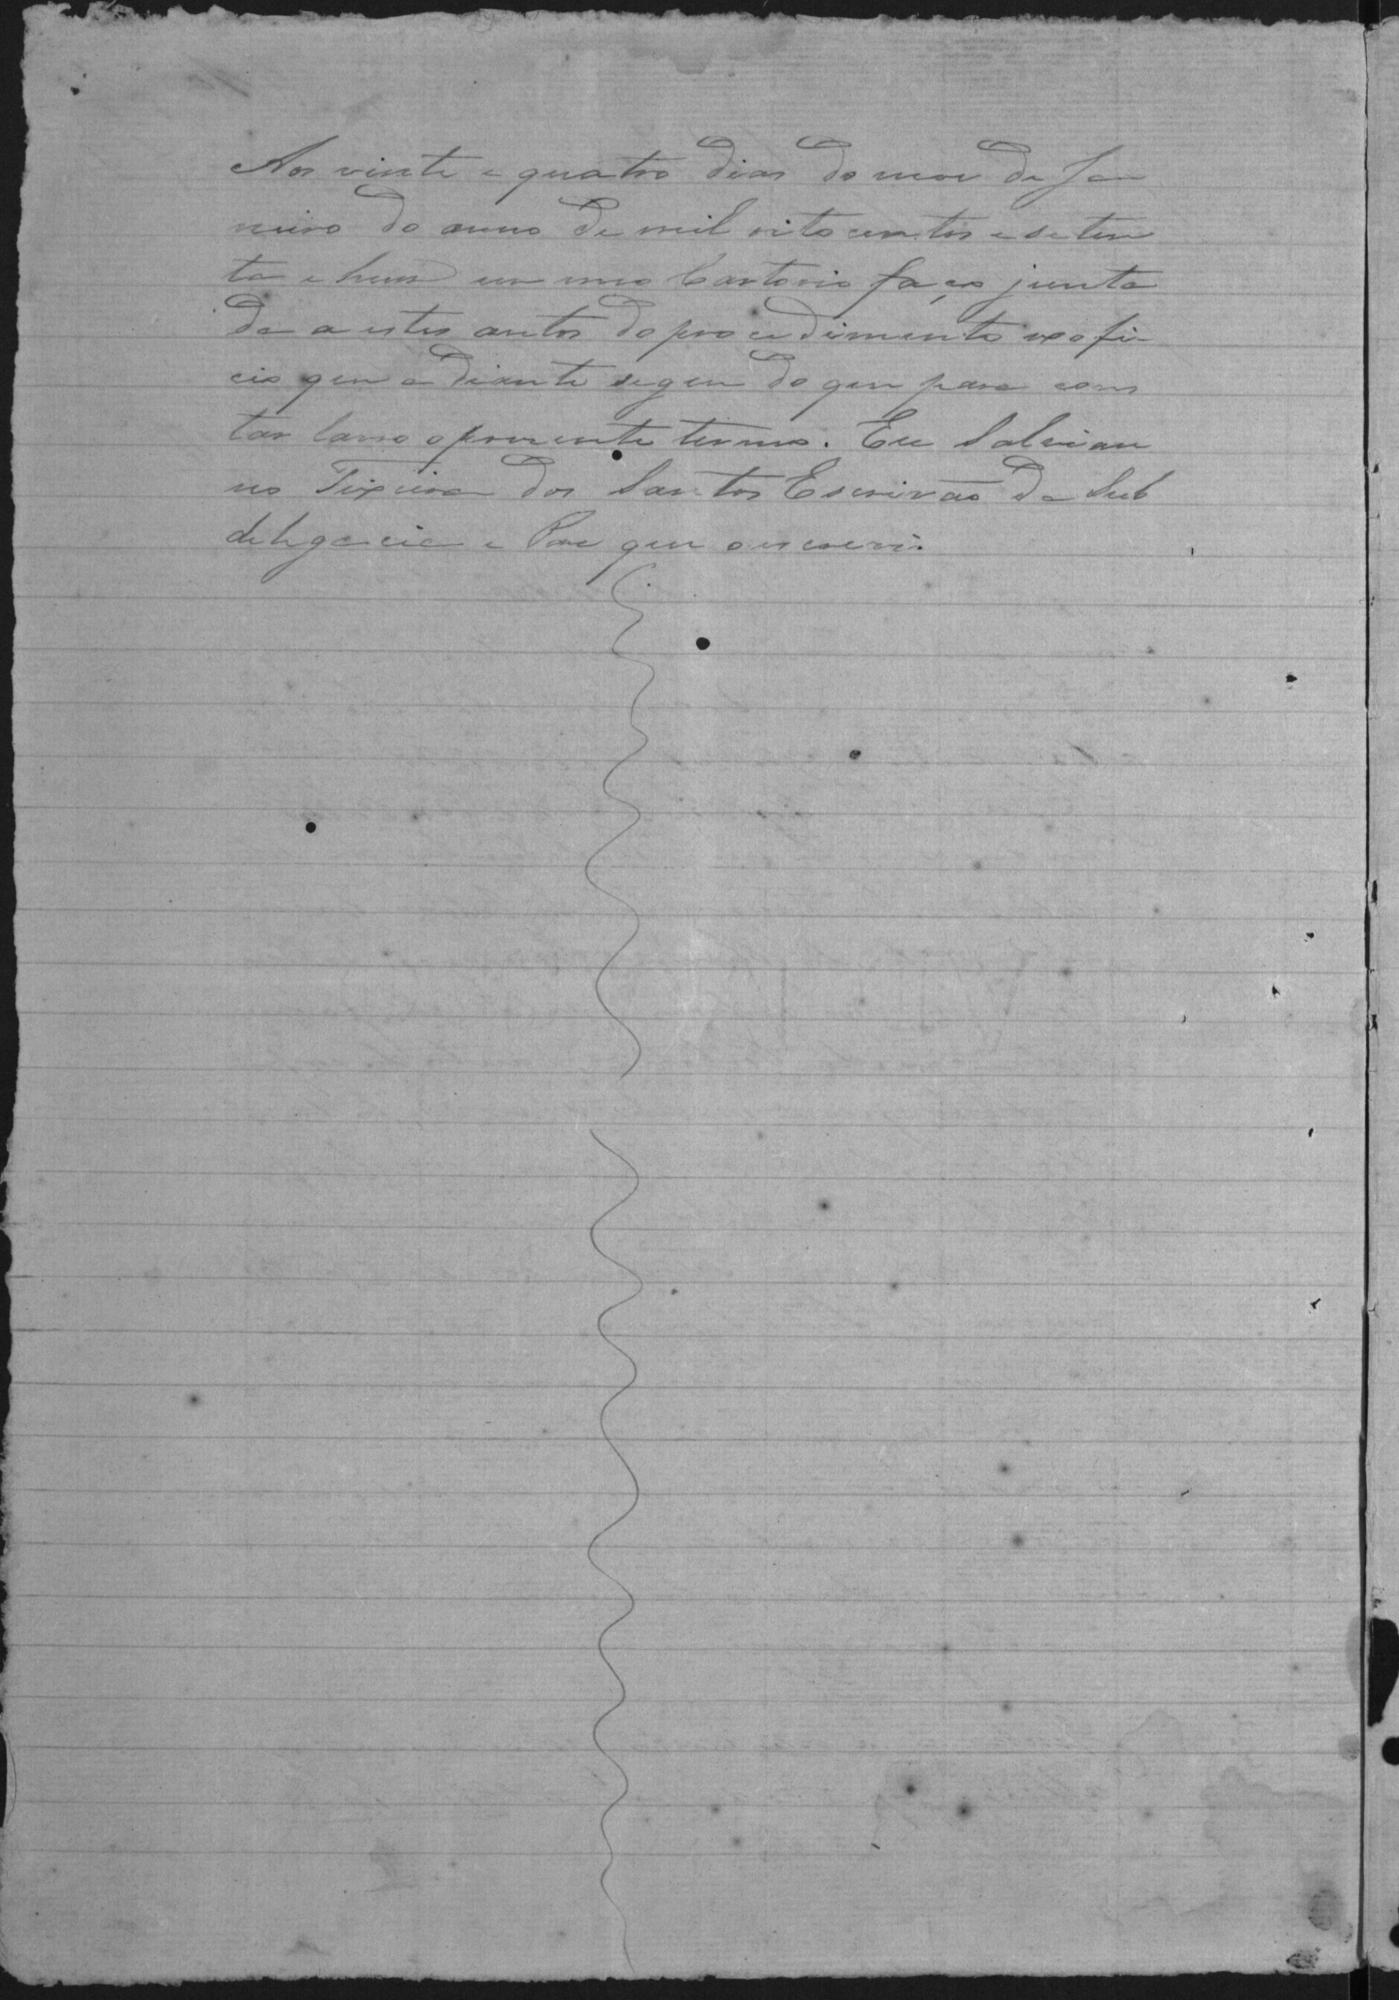 Aos vinte e quatro dias do mes de Ja
neiro do anno de mil oito centos e seten
ta e hum em meo Cartorio faço junta
da a estes autos do procedimento exofi-
cio que a diante segue do que para cons
tar lavro o presente termo. Eu Salvian
no Teixeira dos Santos Escrivão da Sub
delegacia e Paz que o escrevi.